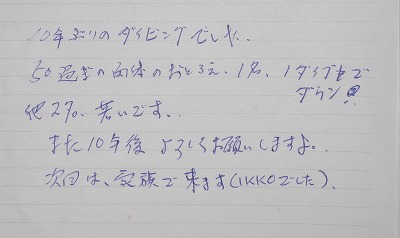 10年ぶりのダイビングでした。
50過ぎの肉体のおとろえ、1名、1ダイブ目で
ダウン!!
他2名、若いです。
また10年後よろしくお願いしますよ。
次回は、家族で来ます(IKKOでした)。